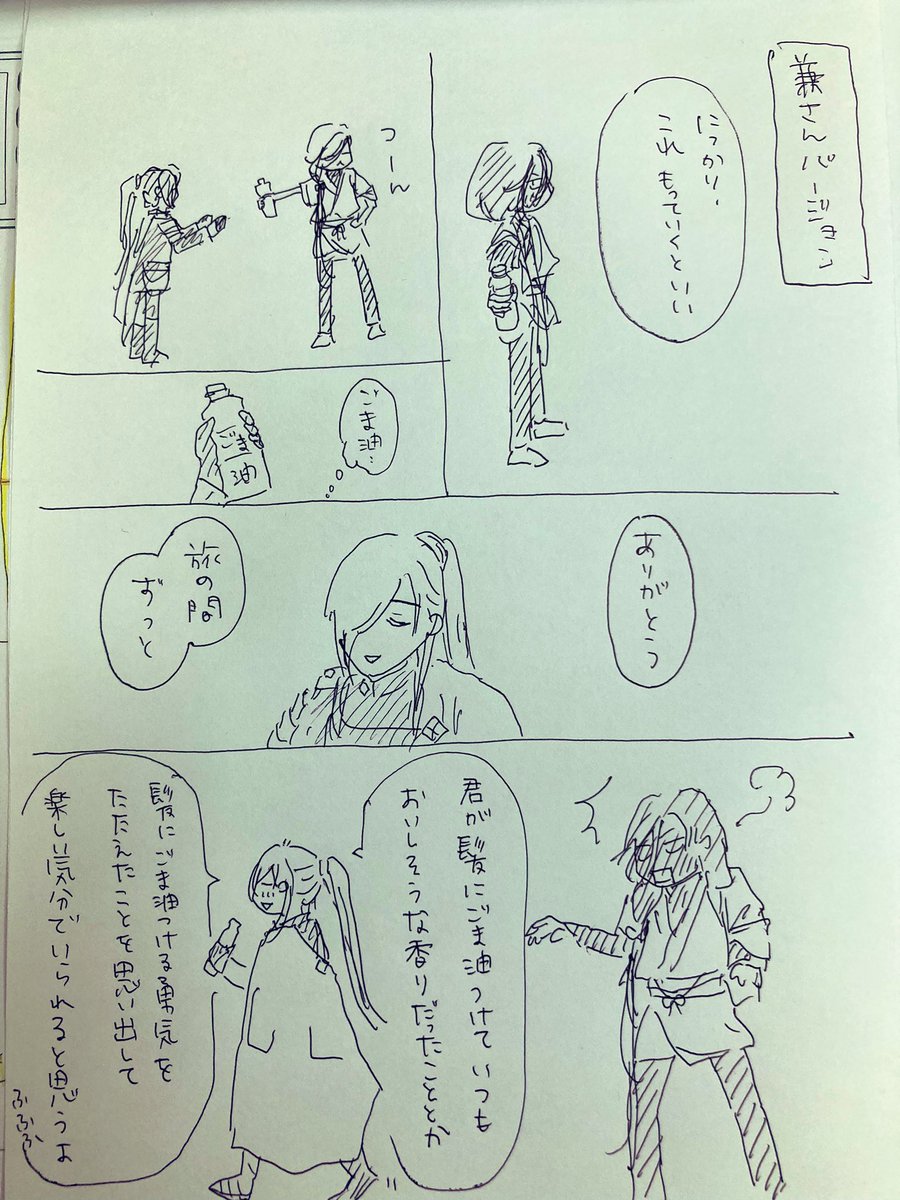 兼さんバージョン
にっかり、
これ もっていくといい
つーん
ごま油…
ごま
油
ありがとう
旅の間
ずっと
君が髪にごま油つけていつも
おいしそうな香りだったこととか
髪にごま油つける勇気を
たたえたことを思い出して
楽しい気分でいられると思うよ
ふふふ